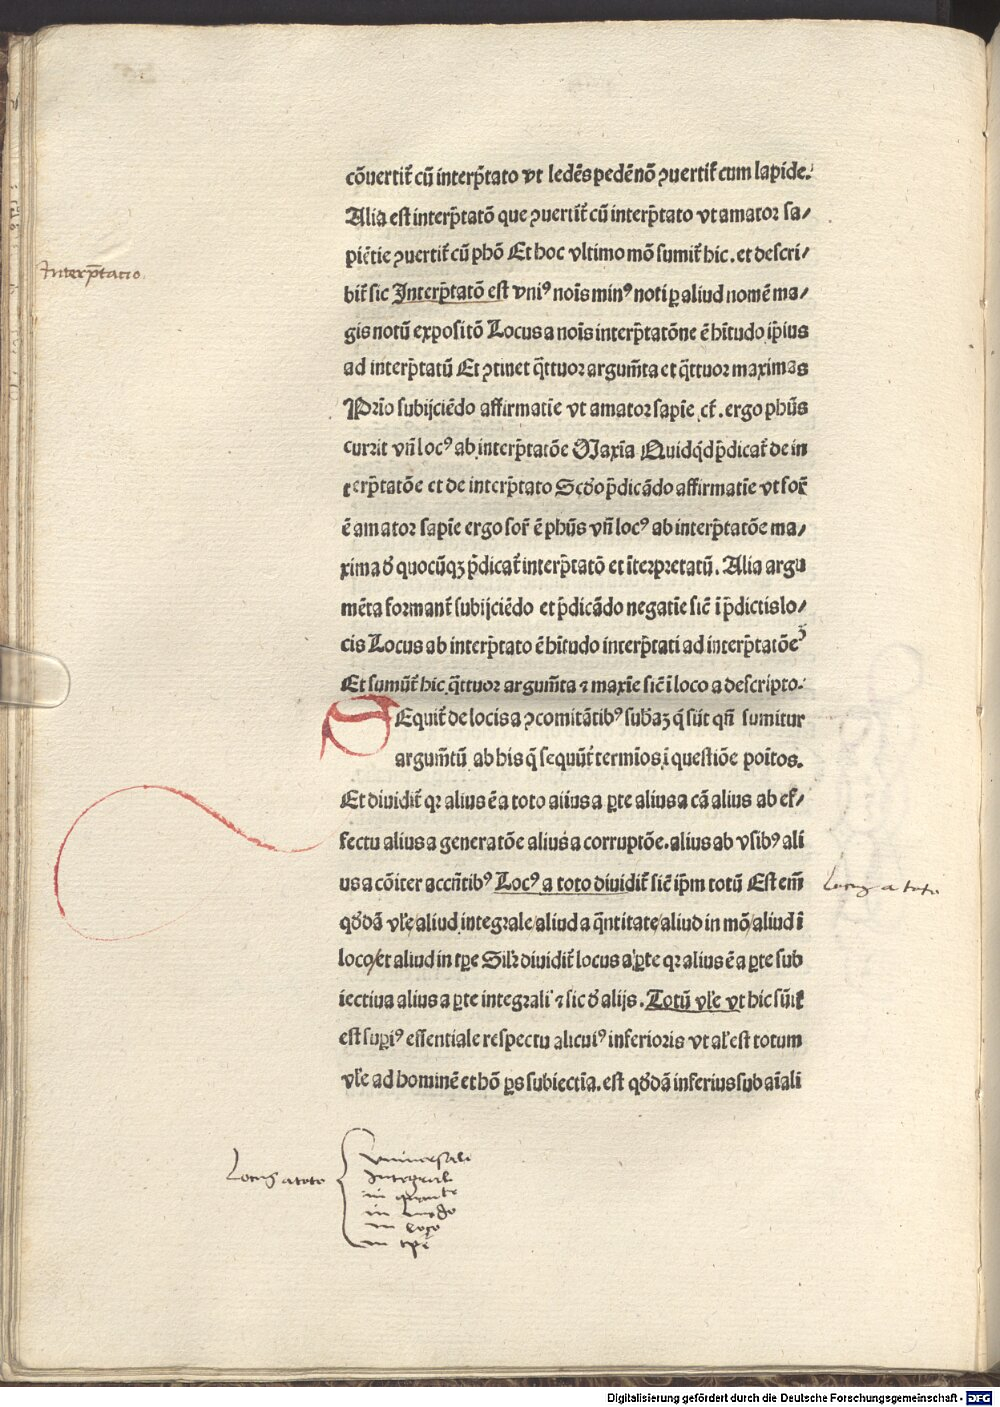 cõuertit᷑ cũ interp̃tato vt ledẽs pedẽ nõ ꝯuertit᷑ cum lapide.
Alia est interp̃tatõ que ꝯuertit᷑ cũ interp̃tato vt amator sa/
piẽtie ꝯuertit᷑ cũ phõ Et hoc vltimo mõ sumit᷑ hic. et descri/
Interp̃tatio
bit᷑ sic Interp̃tatõ est vniꝰ noĩs minꝰ noti ꝑ aliud nomẽ ma/
gis notũ expositõ Locus a noĩs interp̃tatõne ẽ hĩtudo ip̃ius
ad interp̃tatũ Et ꝯtinet q̃ttuor argum̃ta et q̃ttuor maximas
Prĩo subijciẽdo affirmatiẽ vt amator sapiẽ ct᷑. ergo phũs
currit vñ locꝰ ab interp̃tatõe Maxĩa Quidq̃d p̃dicat᷑ de in
terp̃tatõe et de interp̃tato Scd̃o p̃dicãdo affirmatiẽ vt sor᷑
ẽ amator sapiẽ ergo sor᷑ ẽ phũs vñ locꝰ ab interp̃tatõe ma/
xima d̃ quocũqꝫ p̃dicat᷑ interp̃tatõ et ĩterpretatũ. Alia argu
mẽta formant᷑ subijciẽdo et p̃dicãdo negatiẽ siẽ ĩ p̃dictis lo/
cis Locus ab interp̃tato ẽ hĩtudo interp̃tati ad interp̃tatõeꝫ
Et sumũt᷑ hic q̃ttuor argum̃ta ⁊ maxiẽ siẽ ĩ loco a descripto.
SEquit᷑ de locis a ꝯcomitãtibꝰ sub̃aꝫ q̃ sũt qñ sumitur
argum̃tũ ab his q̃ sequũt᷑ termĩos ĩ questiõe poĩtos.
Et diuidit᷑ qꝛ alius ẽ a toto alius a ꝑte alius a cã alius ab ef/
fectu alius a generatõe alius a corruptõe. alius ab vsibꝰ ali
us a cõiter accñtibꝰ Locꝰ a toto diuidit᷑ siẽ ip̃m totũ Est em̃
Locus a toto
qd̃dã vl̃e/aliud integrale/aliud a q̃ntitate/aliud in mõ/aliud ĩ
loco/et aliud in tꝑe Sil̃r diuidit᷑ locus a ꝑte qꝛ alius ẽ a ꝑte sub
iectiua alius a ꝑte integrali ⁊ sic d̃ alijs. Totũ vl̃e vt hic sũit᷑
est suꝑiꝰ essentiale respectu alicuiꝰ inferioris vt al̃ est totum
vl̃e ad hominẽ et hõ ꝑs subiectĩa. est qd̃dã inferius sub aĩali
Locus a toto
vniuersali
Integrali
in quante
in modo
in loco
in tꝑe
Digitalisierung gefördert durch die Deutsche Forschungsgemeinschaft - DFG